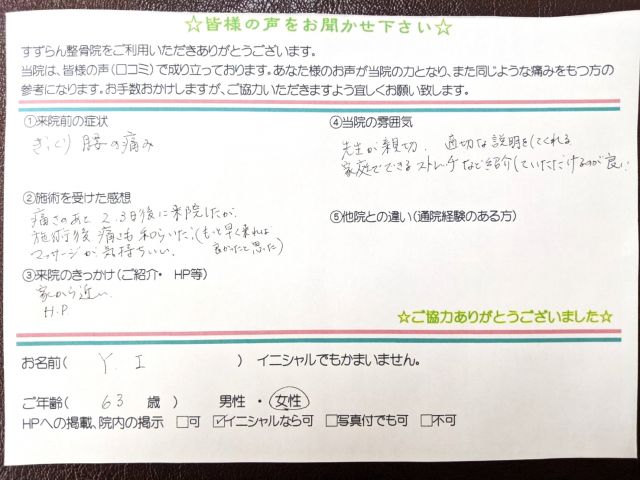 ☆皆様の声をお聞かせ下さい☆
すずらん整骨院をご利用いただきありがとうございます。
当院は、皆様の声(口コミ)で成り立っております。あなた様のお声が当院の力となり、また同じような痛みをもつ方の
参考になります。お手数おかけしますが、ご協力いただきますよう宜しくお願い致します。
①来院前の症状
ぎっくり腰の痛み
②施術を受けた感想
痛さのあと2.3日後に来院したが、
施術後痛さも和らいだ。(もっと早く来れば
良かったと思った)
マッサージが気持ちいい。
③来院のきっかけ(ご紹介・ HP等)
家から近い
H.P
④当院の雰囲気
先生が親切、適切な説明をしてくれる
家庭でできるストレッチなど紹介していただけるのが良い
⑤他院との違い(通院経験のある方)
☆ご協力ありがとうございました☆
お名前( Y. I ) イニシャルでもかまいません。
ご年齢( 63 歳) 男性 ・ 女性
HPへの掲載、院内の掲示 □可 ☑イニシャルなら可 □写真付でも可 □不可